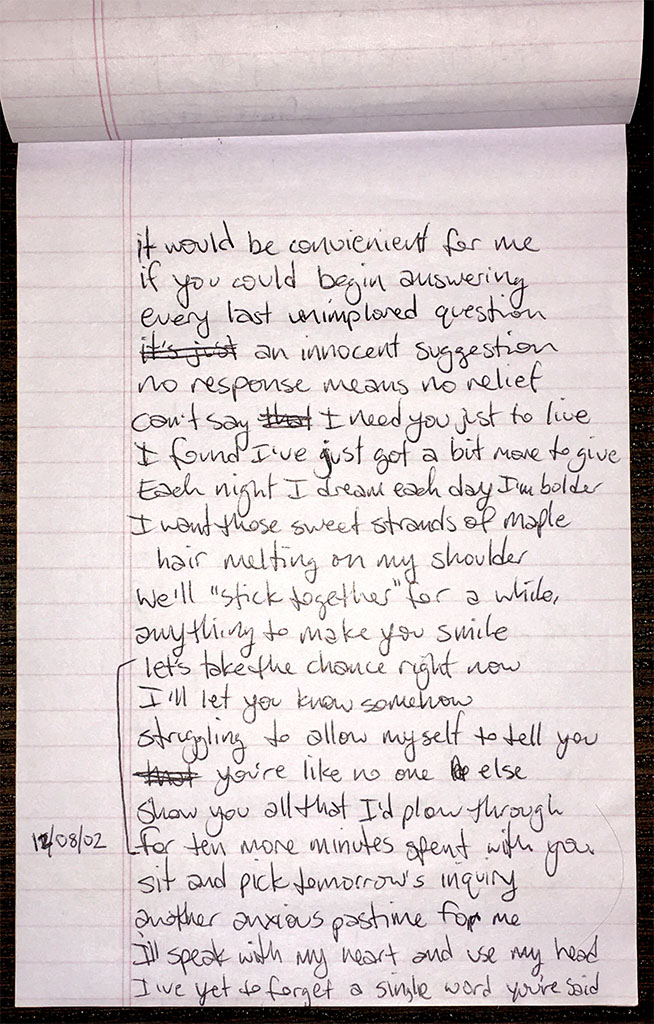 it would be convienient for me
if you could begin answering
every last unimplored question
it's just an innocent suggestion
no response means no relief
can't say that I need you just to live
I found I've just got a bit more to give
Each night I dream each day I'm bolder
I want those sweet strands of maple
hair melting on my shoulder
we'll "stick together" for a while,
anything to make you smile
let's take the chance right now
I'll let you know somehow
struggling to allow myself to tell you
that you're like no one else
show you all that I'd plow through
12/08/02 for ten more minutes spent with you
sit and pick tomorrow's inquiry
another anxious pastime for me
I'll speak with my heart and use my head
I've yet to forget a single word you've said